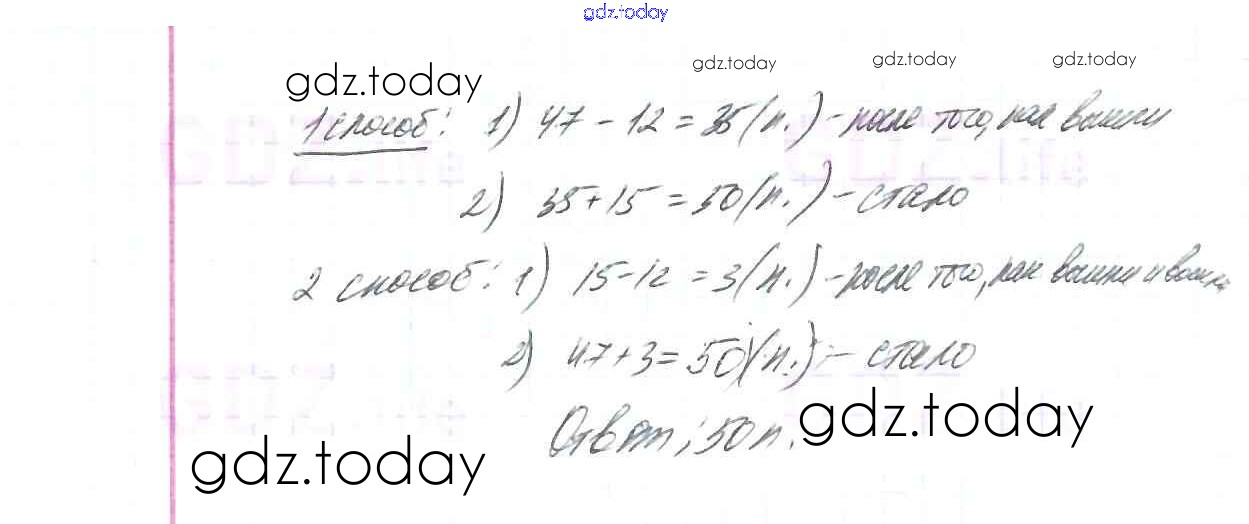 gdz.today
gdz.today gdz.today gdz.today
gdz.today
1 способ: 1) 47 - 12 = 35 (п.) - после того, как вышли
GDZ.life GDZ.life
2) 35 + 15 = 50 (п.) - стало
2 способ: 1) 15 - 12 = 3 (п.) - после того, как вышли и вошли
2) 47 + 3 = 50 (п.) - стало
GDZ.life GDZ.life
gdz.today
Ответ: 50 п.
gdz.today